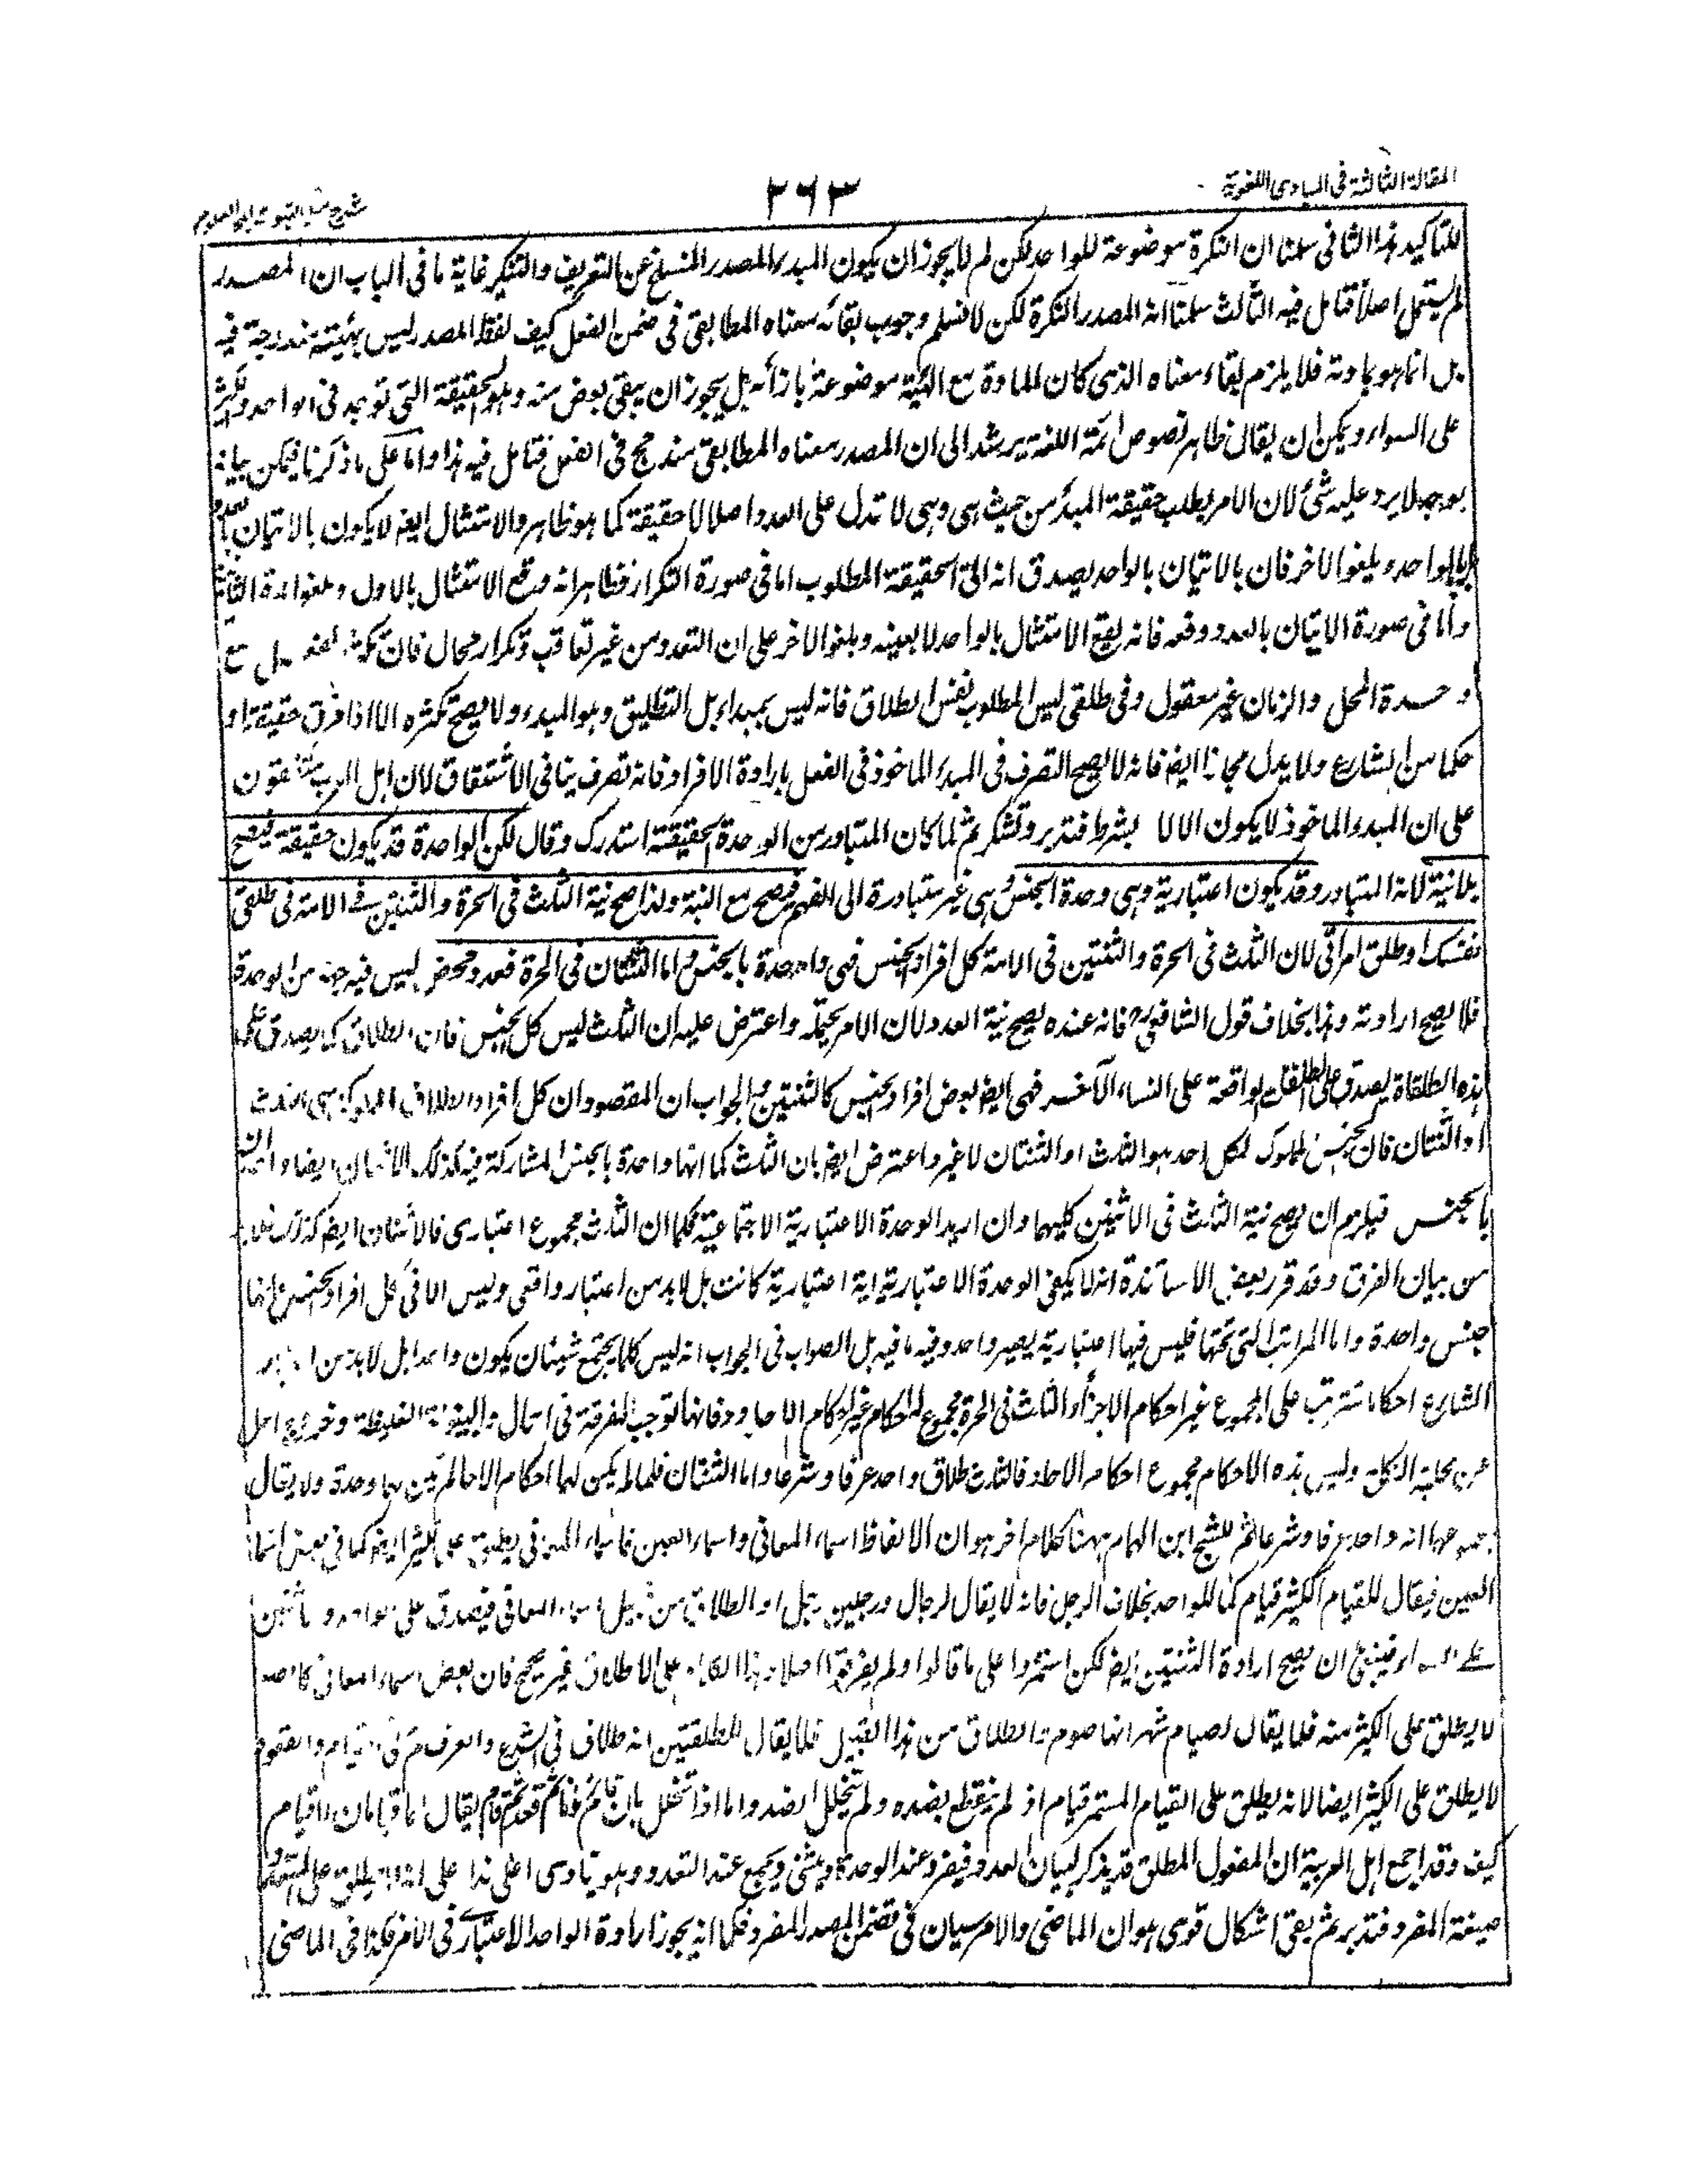 المقالة الثالثة فى المبادى اللغوية
٣٦٣
شرح مسلم الثبوت لبحر العلوم
للتاكيد هذا الثانى سلمنا ان النكرة موضوعة للواحد لكن لم لا يجوز ان يكون المبدء المصدر المنسلخ عن التعريف والتنكير غاية ما فى الباب ان المصدر
لم يستعمل اصلا فتامل فيه الثالث سلمنا انه المصدر النكرة لكن لا نسلم وجوب بقائه بمعناه المطابقى فى ضمن الفعل كيف لفظ المصدر ليس بهيئته مندرجة فيه
بل انما هو بمادته فلا يلزم بقاء معناه الذى كان للمادة مع الهيئة موضوعة بازائه بل يجوز ان يبقى بعض منه وهو الحقيقة التى توجد فى الواحد والكثير
على السواء ويمكن ان يقال ظاهر نصوص ائمة اللغة يرشد الى ان المصدر بمعناه المطابقى مندمج فى الفعل فتامل فيه هذا واما على ما ذكرنا فيمكن بيانه
بوجه لا يرد عليه شئ لان الامر يطلب حقيقة المبدء من حيث هى وهى لا تدل على العدد اصلا لا حقيقة كما هو ظاهر والامتثال ايضا لا يكون بالاتيان بالعدد
بل بالواحد ويلغو الاخر فان بالاتيان بالواحد يصدق انه اتى الحقيقة المطلوب اما فى صورة التكرار فظاهر انه وقع الامتثال بالاول ويلغو المرة الثانية
واما فى صورة الاتيان بالعدد دفعة فانه يقع الامتثال بالواحد لا بعينه ويلغو الاخر على ان التعدد من غير تعاقب وتكرار محال فان تكثر الفعل مع
وحدة المحل والزمان غير معقول وفى طلقى ليس المطلوب نفس الطلاق فانه ليس بمبداء بل التطليق وهو المبدء ولا يصح تكثره الا اذا فرق حقيقة او
حكما من الشارع ولا يدل مجازا ايضا فانه لا يصح التصرف فى المبدء الماخوذ فى الفعل بارادة الافراد فانه تصرف ينافى الاشتقاق لان اهل العربية متفقون
على ان المبدء الماخوذ لا يكون الا لا بشرط فتدبر وتشكر ثم لما كان المتبادر من الوحدة الحقيقة استدرك وقال لكن الواحدة قد يكون حقيقة فيصح
بلا نية لانه المتبادر وقد يكون اعتبارية وهى وحدة الجنس وهى غير متبادرة الى الفهم فيصح مع النية ولذا صح نية الثلث فى الحرة والثنتين فى الامة فى طلقى
نفسك او طلق امراتى لان الثلث فى الحرة والثنتين فى الامة كل افراد الجنس فهى واحدة بالجنس واما الثنتان فى الحرة فعدد محض ليس فيه جهة من الوحدة
فلا يصح ارادته وهذا بخلاف قول الشافعى فانه عنده يصح نية العدد لان الامر يحتمله واعترض عليه ان الثلث ليس كل الجنس فان الطلاق كما يصدق على
هذه الطلقات يصدق على الطلقات الواقعة على النساء الاخر فهى ايضا بعض افراد الجنس كالثنتين والجواب ان المقصود ان كل افراد الطلاق المملوكة هى الثلث
او الثنتان فان الجنس المملوك لكل احد هو الثلث او الثنتان لا غير واعترض ايضا بان الثلث كما انها واحدة بالجنس لمشاركة فيه كذلك الاثنان ايضا واحد
بالجنس فيلزم ان يصح نية الثلث فى الاثنين كليهما وان اريد الوحدة الاعتبارية الاجتماعية فكما ان الثلث مجموع اعتبارى فالاثنان ايضا كذلك فلا بد
من بيان الفرق وقد قرر بعض الاساتذة انه لا يكفى الوحدة الاعتبارية اية اعتبارية كانت بل لا بد من اعتبار واقعى وليس الا فى كل افراد الجنس فانها
جنس واحدة واما المراتب التى تحتها فليس فيها اعتبارية يصير واحد وفيه ما فيه بل الصواب فى الجواب انه ليس كلما يجتمع شيئان يكون واحدا بل لا بد من اعتبار
الشارع احكاما تترتب على المجموع غير احكام الاجزاء والثلث فى الحرة مجموع له احكام غير احكام الاحاد وفانها توجب الفرقة فى الحال والبينونة الغليظة وخروج المحل
عن محلية النكاح وليس هذه الاحكام مجموع احكام الاحاد فالثلث طلاق واحد عرفا وشرعا واما الثنتان فلما لم يكن لهما احكام الاحاد لم يكن بهما وحدة ولا يقال
لمجموعهما انه واحد عرفا وشرعا ثم للشيخ ابن الهمام ههنا كلام اخر هو ان الالفاظ اسماء المعانى واسماء العين فاسماء المعنى يطلق على الكثير ايضا كما فى بعض اسماء
العين فيقال للقيام الكثير قيام كما للواحد بخلاف الرجل فانه لا يقال لرجال ورجلين رجل او الطلاق من قبيل اسماء المعانى فيصدق على الواحد والاثنين
على السواء فينبغى ان يصح ارادة الثنتين ايضا لكن استمروا على ما قالوا ولم يفرقوا اصلا وهذا الكلام على الاطلاق غير صحيح فان بعض اسماء المعانى كالصوم
لا يطلق على الكثير منه فلا يقال لصيام شهر انها صوم والطلاق من هذا القبيل فلا يقال للطلقتين انه طلاق فى الشرع والعرف ثم فى القيام والقعود
لا يطلق على الكثير ايضا الا انه يطلق على القيام المستمر قيام اذ لم ينقطع بضده ولم يتخلل الضد واما اذا تخلل بان قائم فنائم ثم قعد ثم قام يقال انها قيامان لا قيام
كيف وقد اجمع اهل العربية ان المفعول المطلق قد يذكر لبيان العدد فيفرد عند الوحدة ويثنى ويجمع عند التعدد وهو ينادى اعلى ندا على انه لا يطلق على المتعدد
صيغة المفرد فتدبر ثم بقى اشكال قوى هو ان الماضى والامر سيان فى تضمن المصدر المفرد فكما انه يجوز ارادة الواحد الاعتبارى فى الامر فكذا فى الماضى